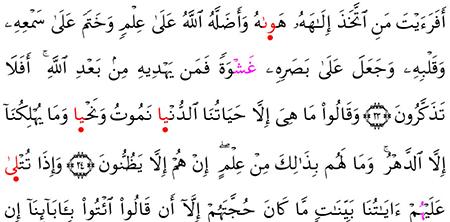 أَفَرَءَيۡتَ مَنِ ٱتَّخَذَ إِلَٰهَهُۥ هَوَىٰهُ وَأَضَلَّهُ ٱللَّهُ عَلَىٰ عِلۡمٖ وَخَتَمَ عَلَىٰ سَمۡعِهِۦ
وَقَلۡبِهِۦ وَجَعَلَ عَلَىٰ بَصَرِهِۦ غِشَٰوَةٗ فَمَن يَهۡدِيهِ مِنۢ بَعۡدِ ٱللَّهِۚ أَفَلَا
تَذَكَّرُونَ ﴿٢٣﴾ وَقَالُواْ مَا هِيَ إِلَّا حَيَاتُنَا ٱلدُّنۡيَا نَمُوتُ وَنَحۡيَا وَمَا يُهۡلِكُنَآ
إِلَّا ٱلدَّهۡرُۚ وَمَا لَهُم بِذَٰلِكَ مِنۡ عِلۡمٍۖ إِنۡ هُمۡ إِلَّا يَظُنُّونَ ﴿٢٤﴾ وَإِذَا تُتۡلَىٰ
عَلَيۡهِمۡ ءَايَٰتُنَا بَيِّنَٰتٖ مَّا كَانَ حُجَّتَهُمۡ إِلَّآ أَن قَالُواْ ٱئۡتُواْ بِـَٔابَآئِنَآ إِن